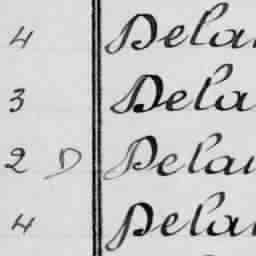 4 Dela
3 Dela
2 D Dela
4 Dela